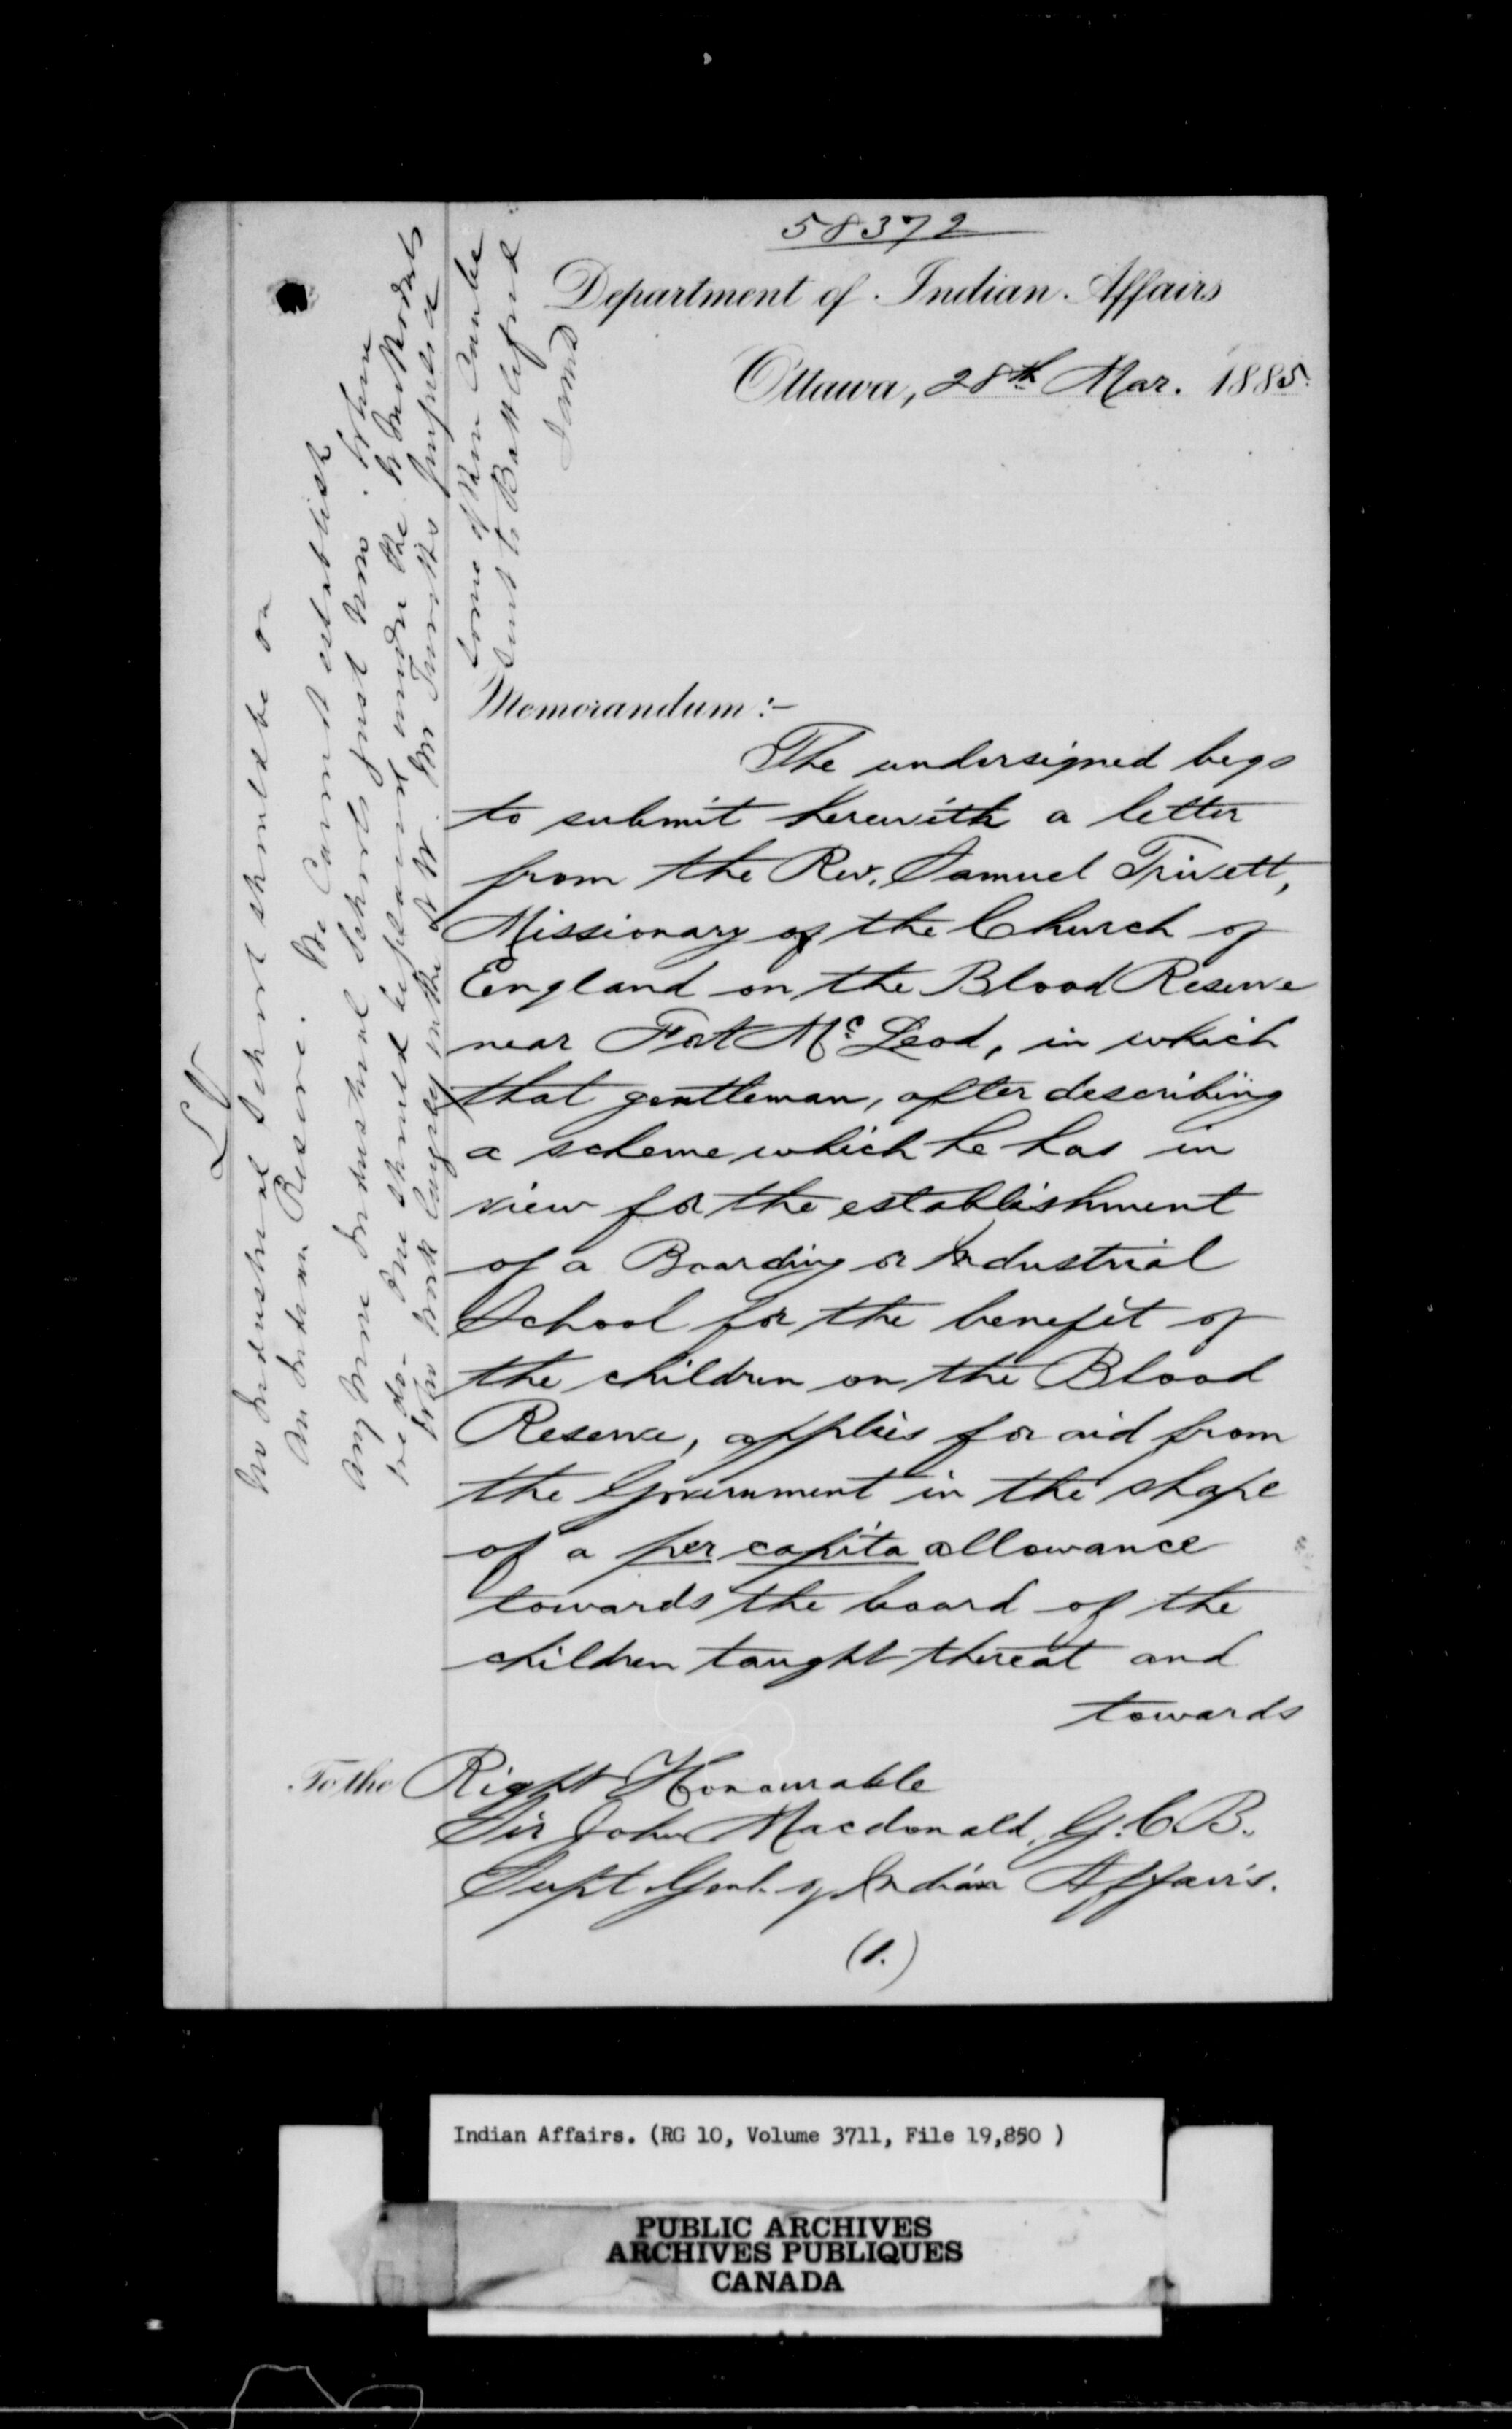 58372
Department of Indian Affairs
Ottawa, 28th Mar. 1885.
Memorandum:-
The undersigned begs
to submit herewith a letter
from the Rev. Samuel Trivett,
Missionary of the Church of
England on the Blood Reserve
near Fort Mc Leod, in which
that gentleman, after describing
a scheme which he has in
view for the establishment
of a Boarding or Industrial
School for the benefit of
the children on the Blood
Reserve, applies for aid from
the Government in the shape
of a per capita allowance
towards the board of the
children taught thereat and
towards
To the Right Honourable
Sir John Macdonald, G.C.B.
Supt Genl. of Indian Affairs.
(1.)
No Industrial School should be on
an Indian Reserve. We cannot establish
any more Industrial Schools just now. When
we do. One should be placed under the Methodists
who work largely in the N W. Mr Trivett's
some of them can be
sent to Battleford
Indian Affairs. (RG 10, Volume 3711, File 19,850 )
PUBLIC ARCHIVES
ARCHIVES PUBLIQUES
CANADA